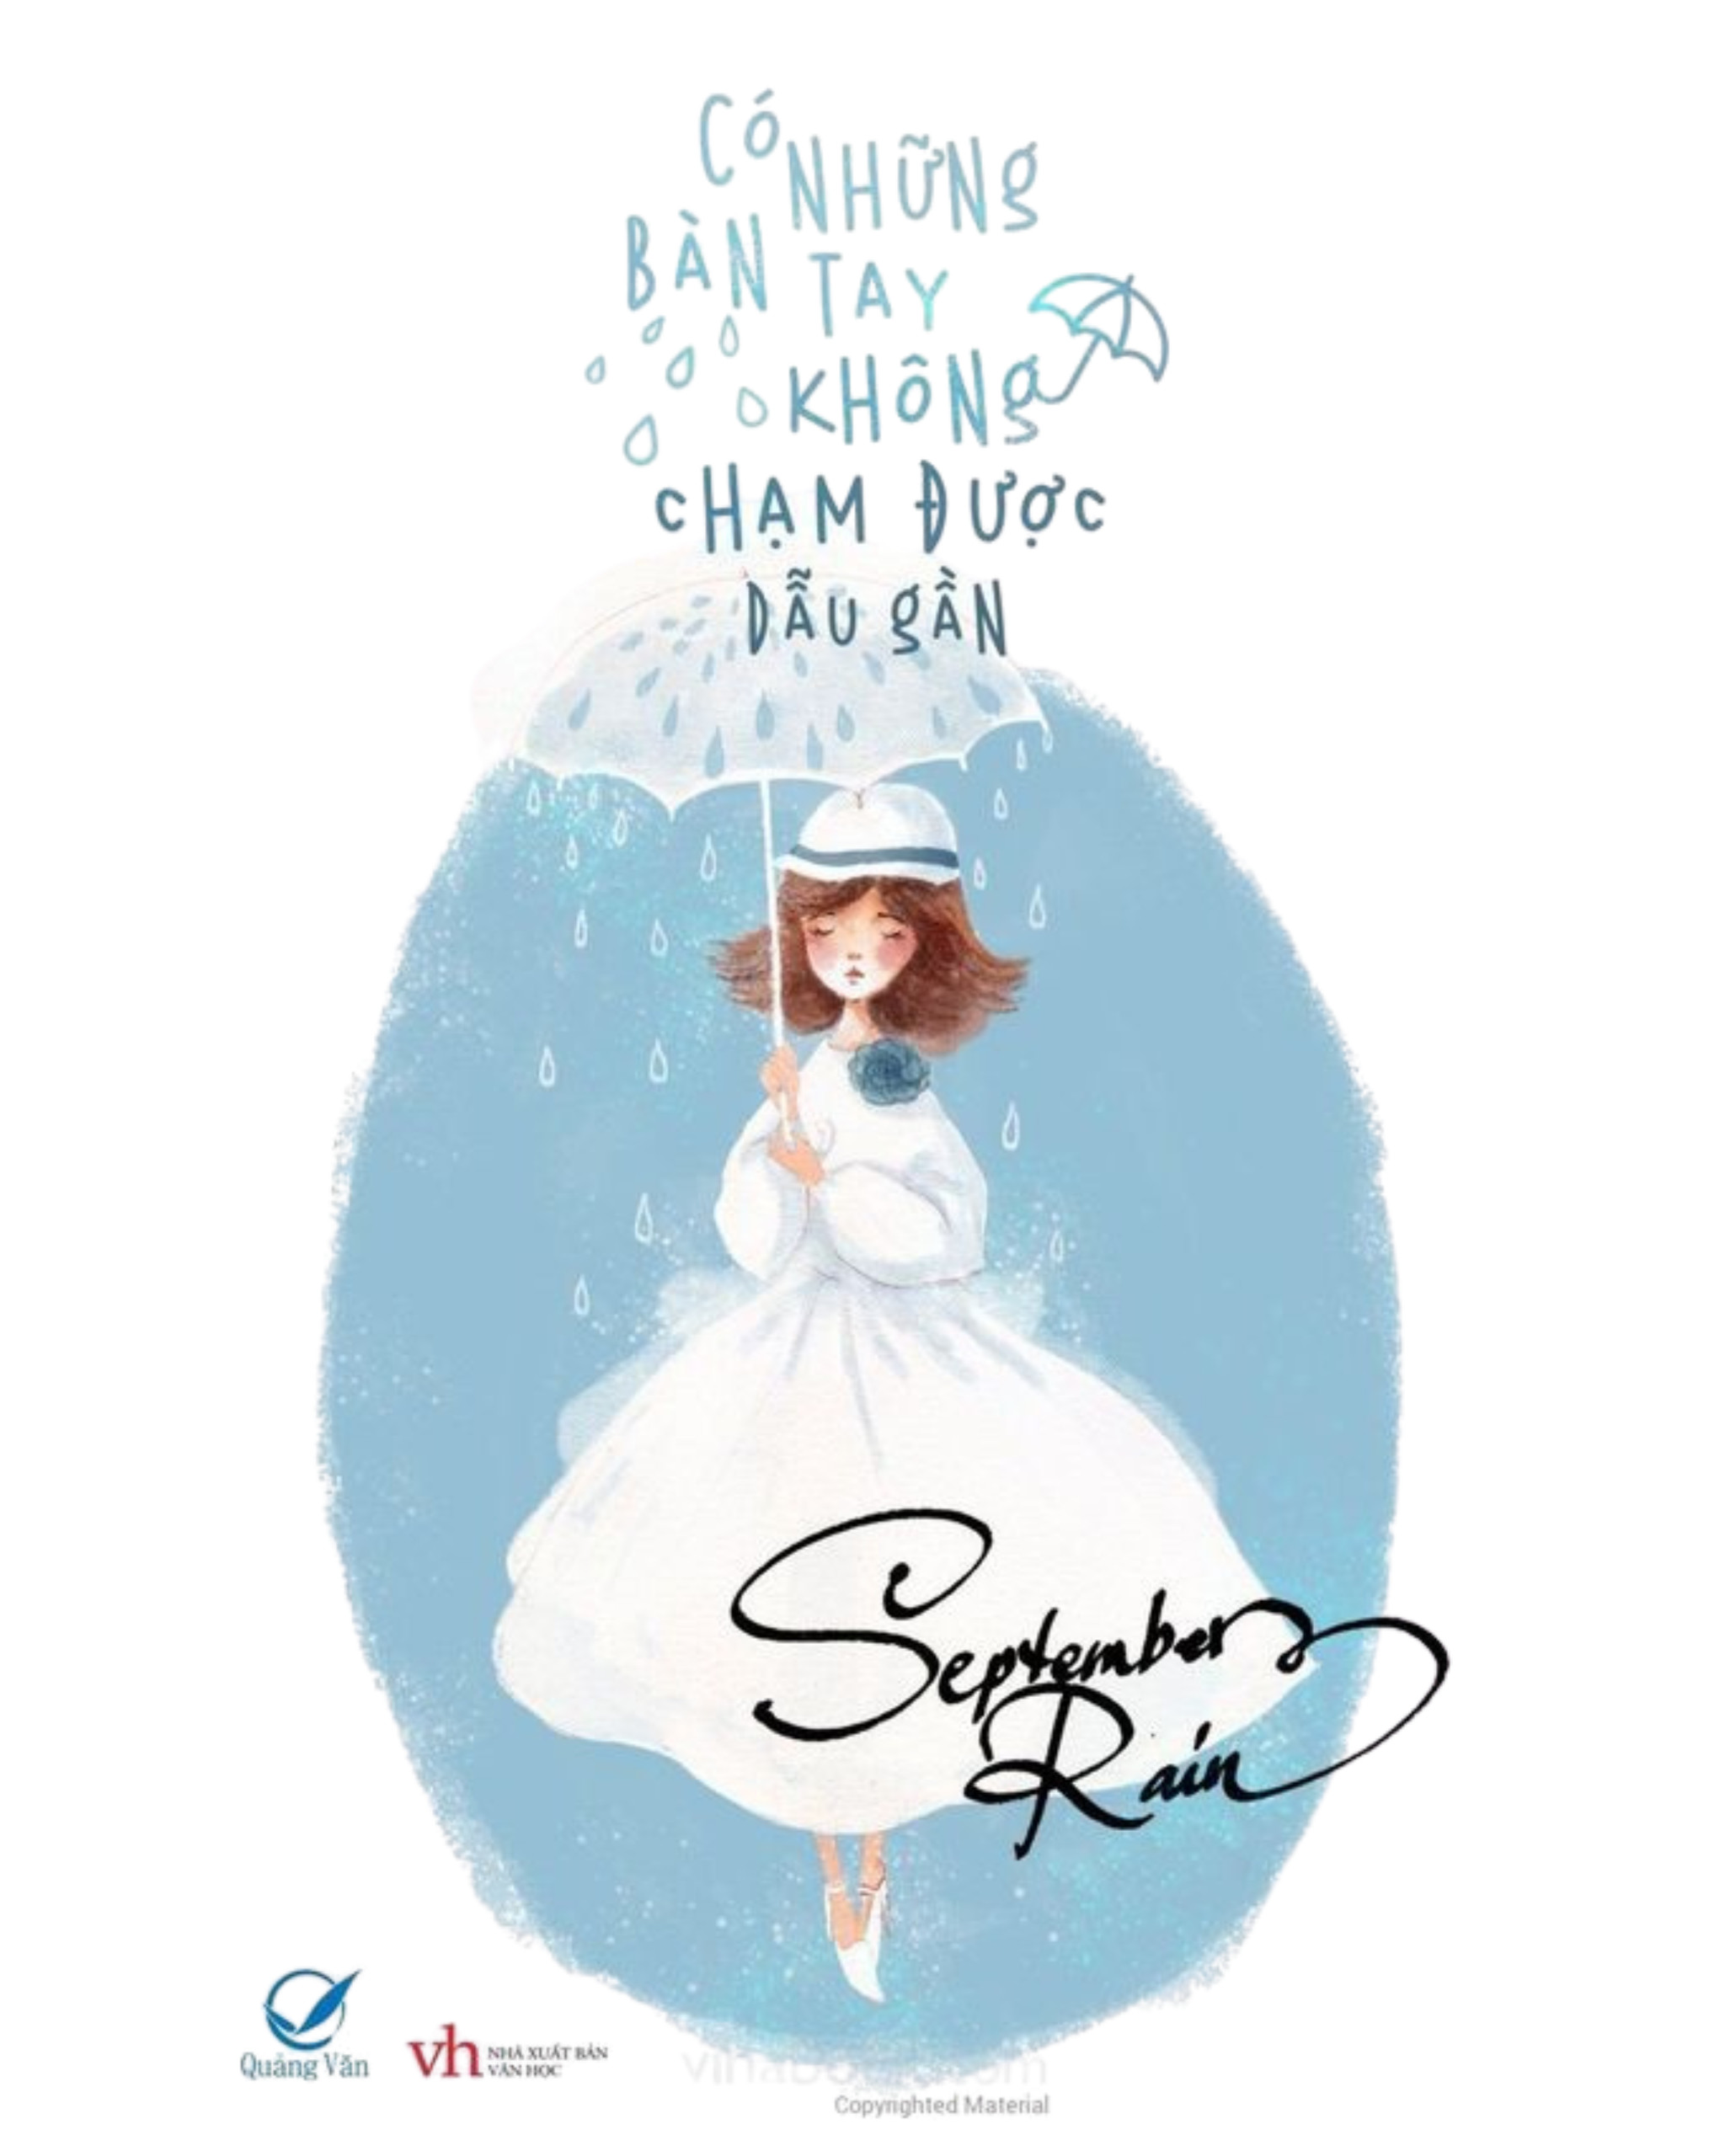 CÓ NHỮNG
BÀN TAY
KHÔNG
CHẠM ĐƯỢC
DẪU GẦN
September
Rain
Quảng Văn
vh NHÀ XUẤT BẢN
VĂN HỌC
Copyrighted Material